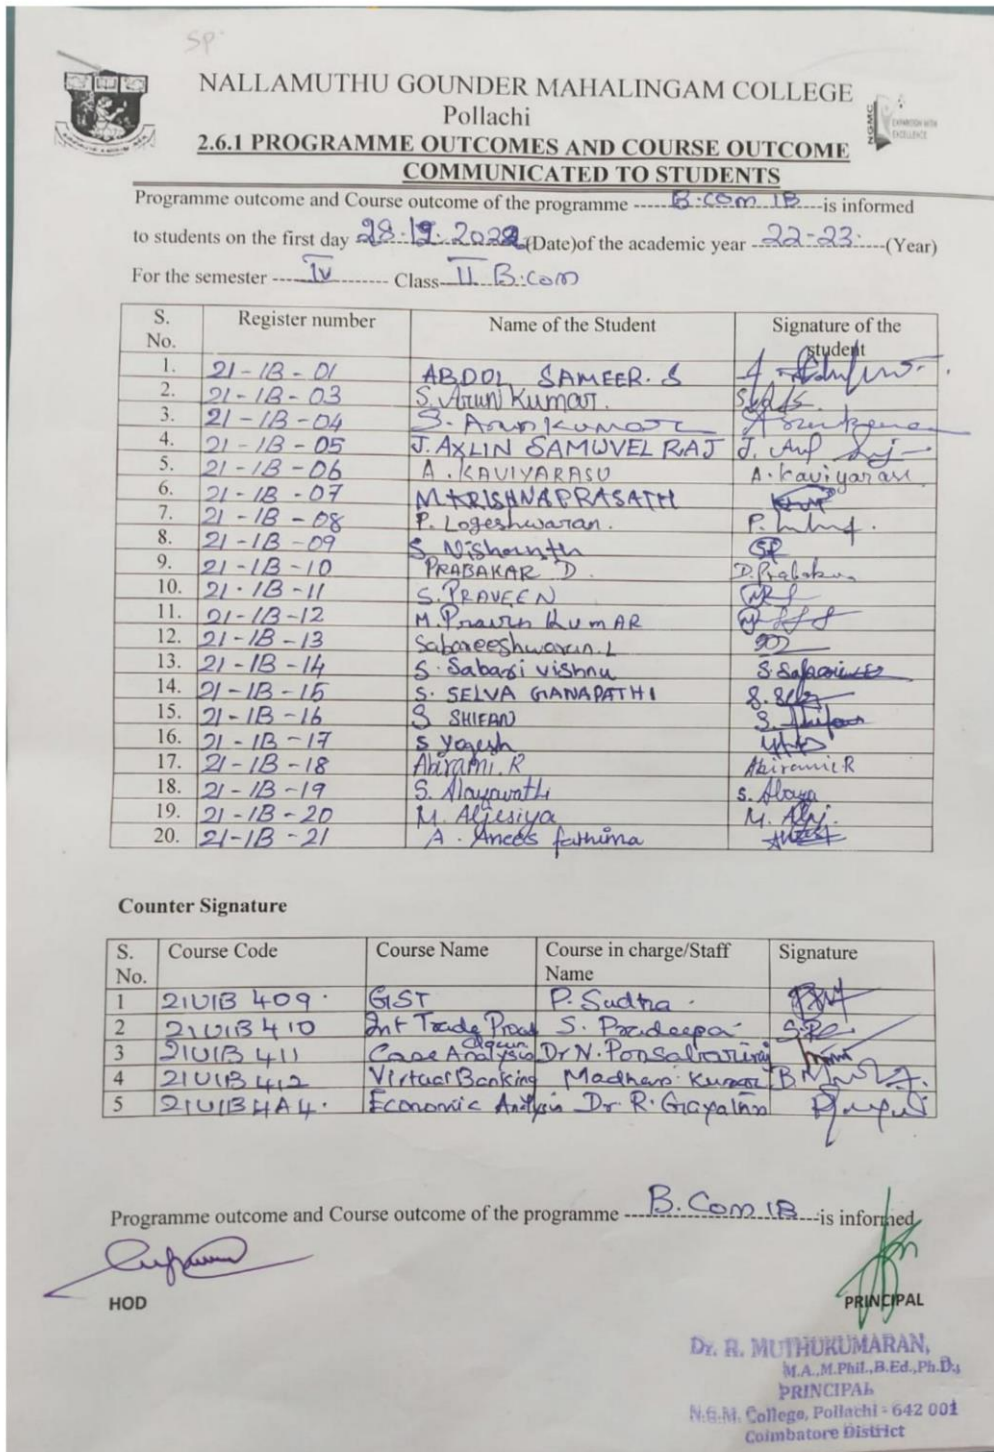 SP
NALLAMUTHU GOUNDER MAHALINGAM COLLEGE
Pollachi
NGMC
EXPANSION WITH
EXCELLENCE
2.6.1 PROGRAMME OUTCOMES AND COURSE OUTCOME
COMMUNICATED TO STUDENTS
Programme outcome and Course outcome of the programme ------B.com IB----is informed
to students on the first day 28.12.2022 (Date)of the academic year --22-23-----(Year)
For the semester -----IV--------- Class--II B.com
S. No. Register number Name of the Student Signature of the student
1. 21-IB-01 ABDOL SAMEER. S
2. 21-IB-03 S. Arun Kumar.
3. 21-IB-04 S. Arunkumar
4. 21-IB-05 J. AXLIN SAMUVEL RAJ
5. 21-IB-06 A. KAVIYARASU A. Kaviyarasu
6. 21-IB-07 M KRISHNAPRASATH
7. 21-IB-08 P. Logeshwaran.
8. 21-IB-09 S. Nishanth
9. 21-IB-10 PRABAKAR D. D. Prabakar
10. 21-IB-11 S. PRAVEEN
11. 21-IB-12 M. Pravin KumAR
12. 21-IB-13 Sabareeshwaran. L
13. 21-IB-14 S. Sabari vishnu
14. 21-IB-15 S. SELVA GANAPATHI
15. 21-IB-16 S SHIFAN
16. 21-IB-17 S Yogesh
17. 21-IB-18 Abirami. R Abirami R
18. 21-IB-19 S.
19. 21-IB-20 M. Aljesiya M. Alj.
20. 21-IB-21 A. Anees fathima
Counter Signature
S. No. Course Code Course Name Course in charge/Staff Name Signature
1 21UIB 409. GST P. Sudha.
2 21UIB 410 Int Trade S. Pradeepa
3 21UIB 411 Case Analysis Dr N.
4 21UIB 412 Virtual Banking Madhan Kumar B
5 21UIB 4A4. Economic Analysis Dr. R. Gayathri
Programme outcome and Course outcome of the programme ----B.Com IB---is informed
HOD
PRINCIPAL
Dr. R. MUTHUKUMARAN,
M.A.,M.Phil.,B.Ed.,Ph.D.,
PRINCIPAL
N.G.M. College, Pollachi - 642 001
Coimbatore District